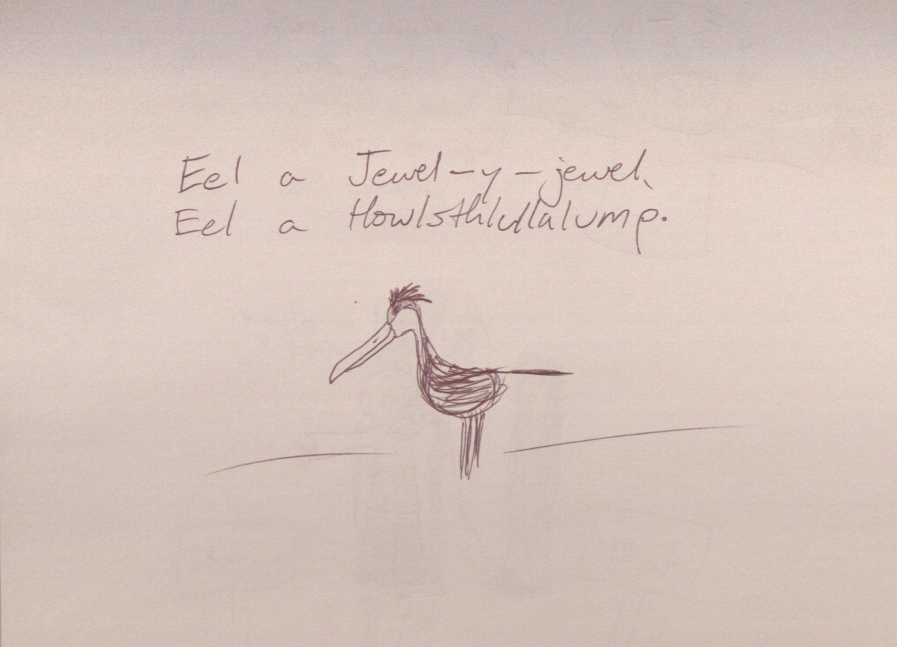 Eel a Jewel-y-jewel,
Eel a Howlsthlullalump.